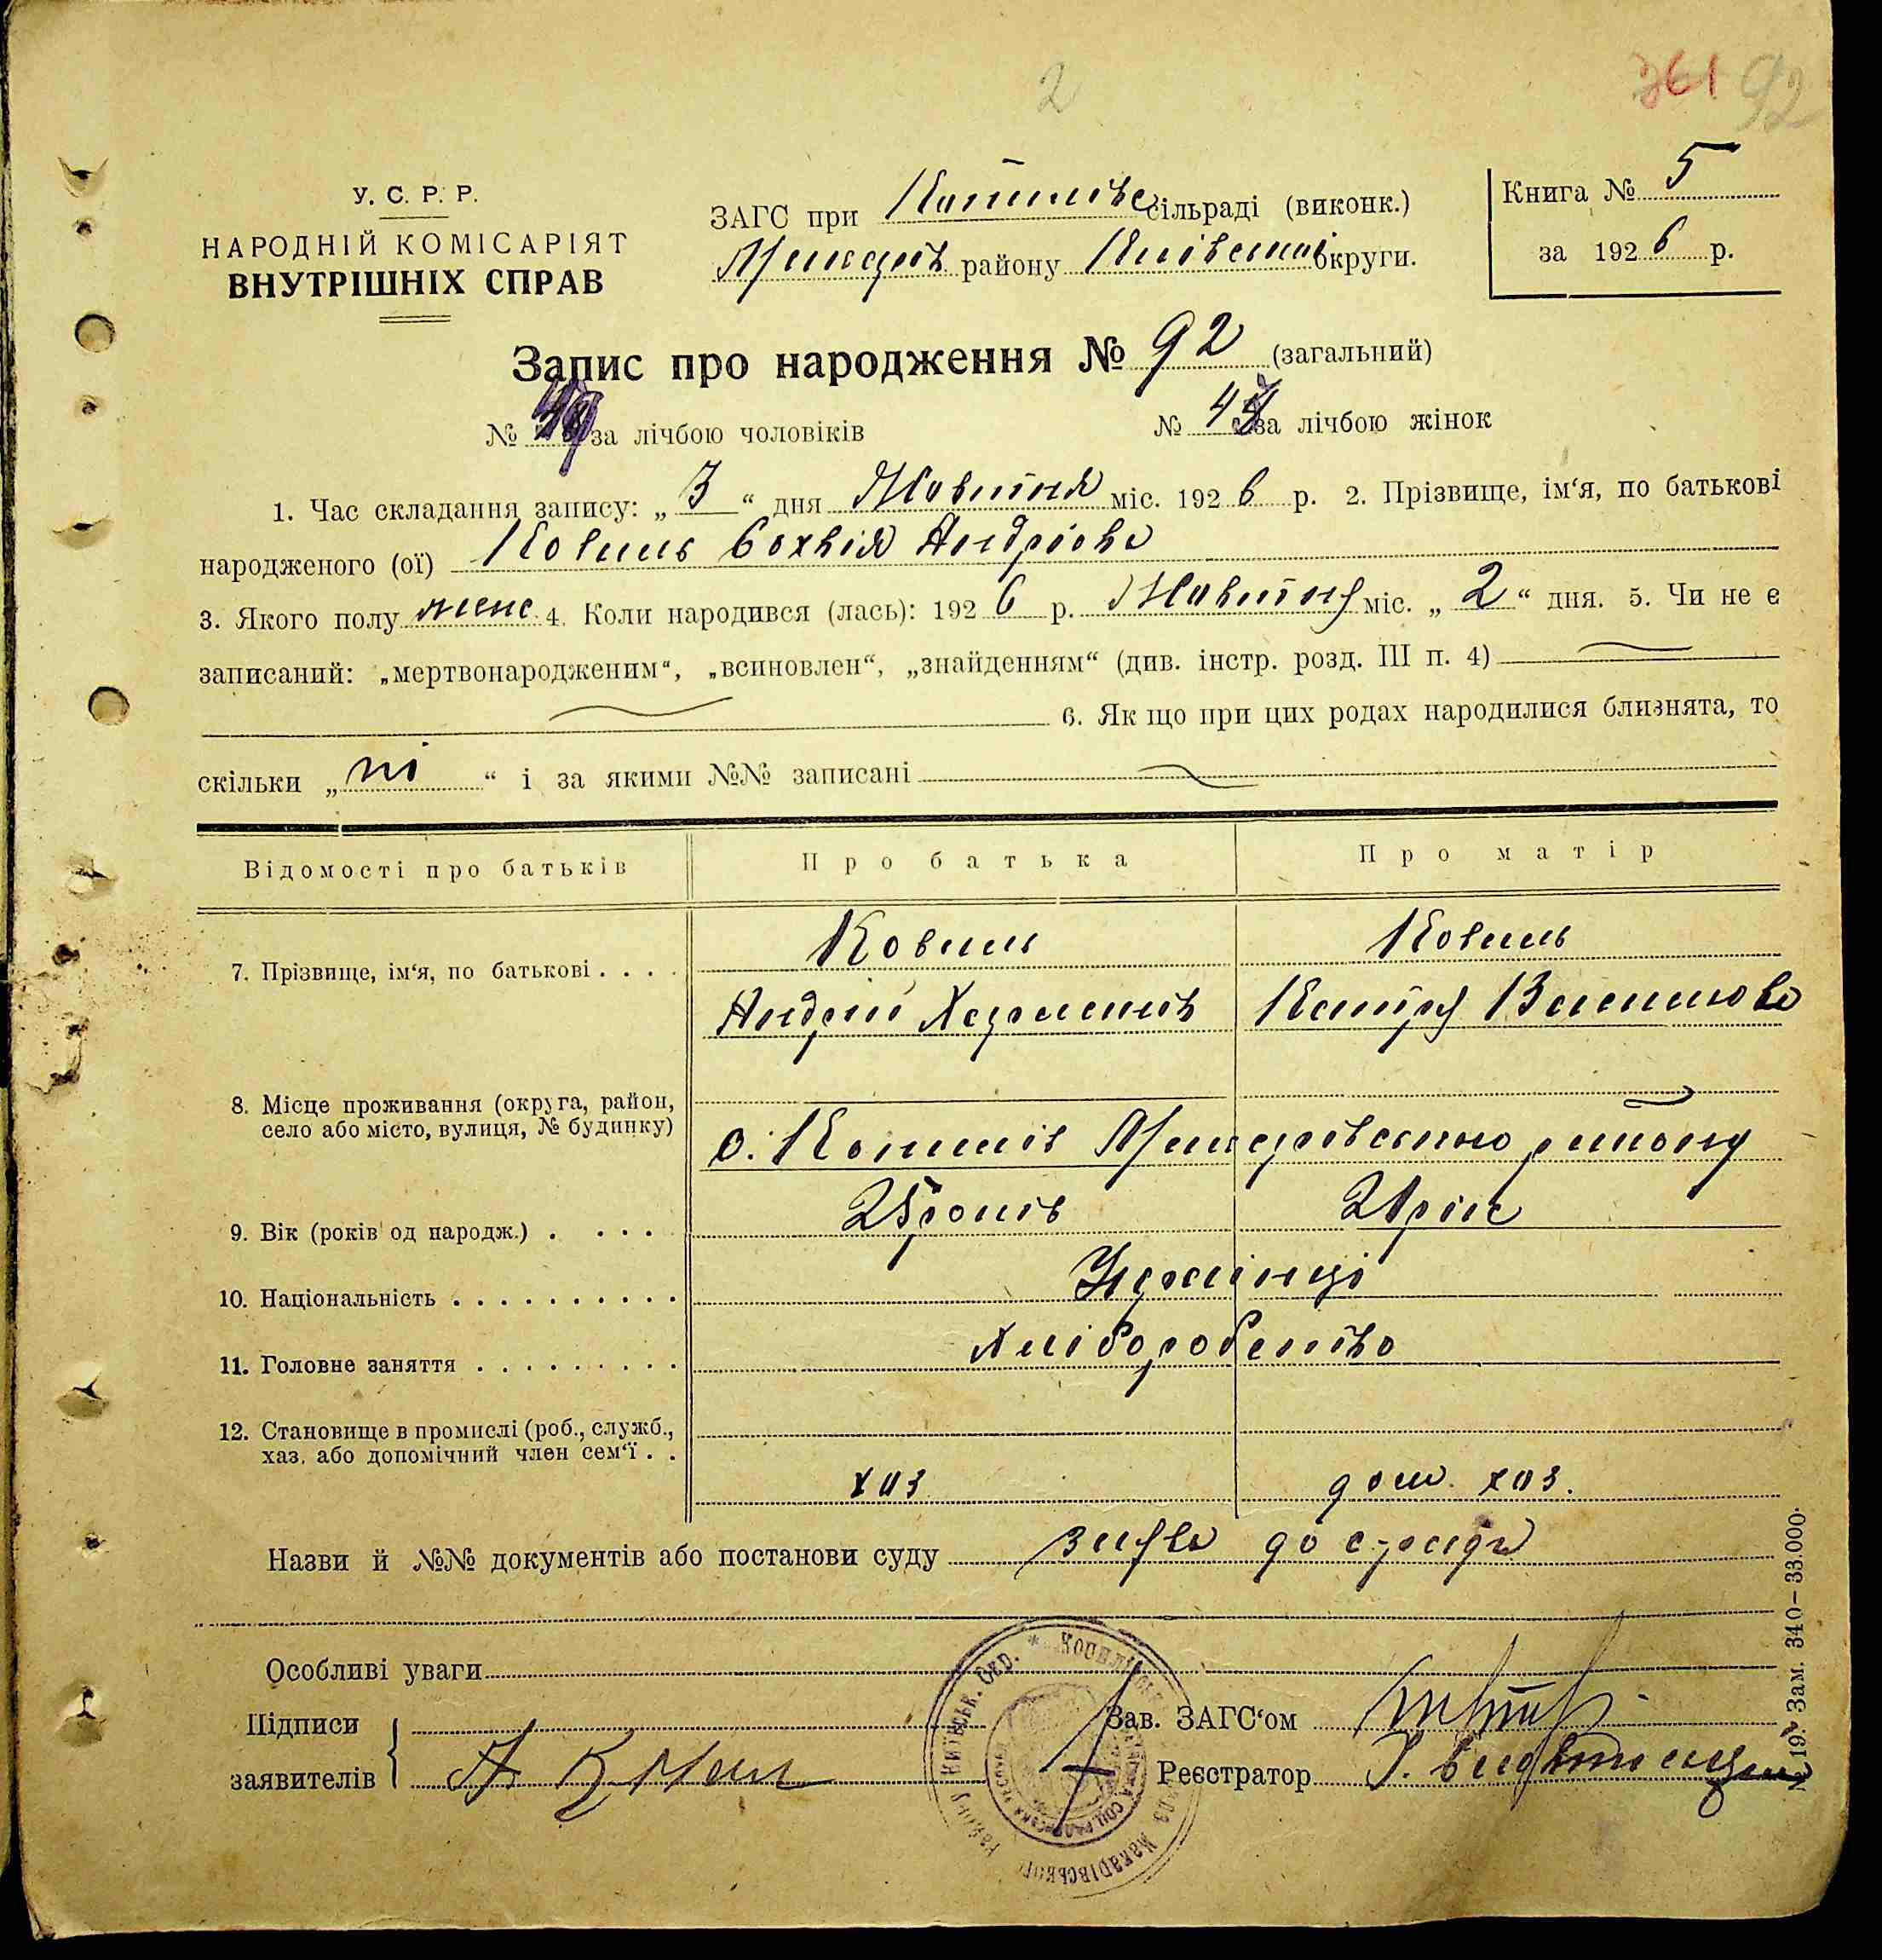 2
361 92
У. С. Р. Р.
НАРОДНІЙ КОМІСАРІЯТ
ВНУТРІШНІХ СПРАВ
ЗАГС при Копилівс сільраді (виконк.)
Макарів району Київської округи.
Книга № 5
за 1926 р.
Запис про народження № 92 (загальний)
№ за лічбою чоловіків
№ за лічбою жінок
1. Час складання запису: „3“ дня Жовтня міс. 1926 р. 2. Прізвище, ім‘я, по батькові
народженого (ої) Ковиль Сохвія Андріова
3. Якого полу жіноч. 4. Коли народився (лась): 1926 р. Жовтня міс. „2“ дня. 5. Чи не є
записаний: „мертвонародженим“, „всиновлен“, „знайденням“ (див. інстр. розд. III п. 4)
6. Як що при цих родах народилися близнята, то
скільки „ні“ і за якими №№ записані
Відомості про батьків
Про батька
Про матір
7. Прізвище, ім‘я, по батькові . . . .
Ковиль
Ковиль
Андрій
Катря Василиова
8. Місце проживання (округа, район,
село або місто, вулиця, № будинку)
с. Копилів Макарівського району
9. Вік (років од народж.) . . . .
25 років
21 рік
10. Національність . . . . . . . . . . .
Українці
11. Головне заняття . . . . . . . . . .
Хліборобство
12. Становище в промислі (роб., служб.,
хаз. або допомічний член сем‘ї . .
хаз
дом. хаз.
Назви й №№ документів або постанови суду заява до с-ради
Особливі уваги
Підписи
заявителів
Зав. ЗАГС‘ом
Реєстратор
Київськ. Окр. * Копилівськ
Макарівського району
№ 19. Зам. 340–33.000.